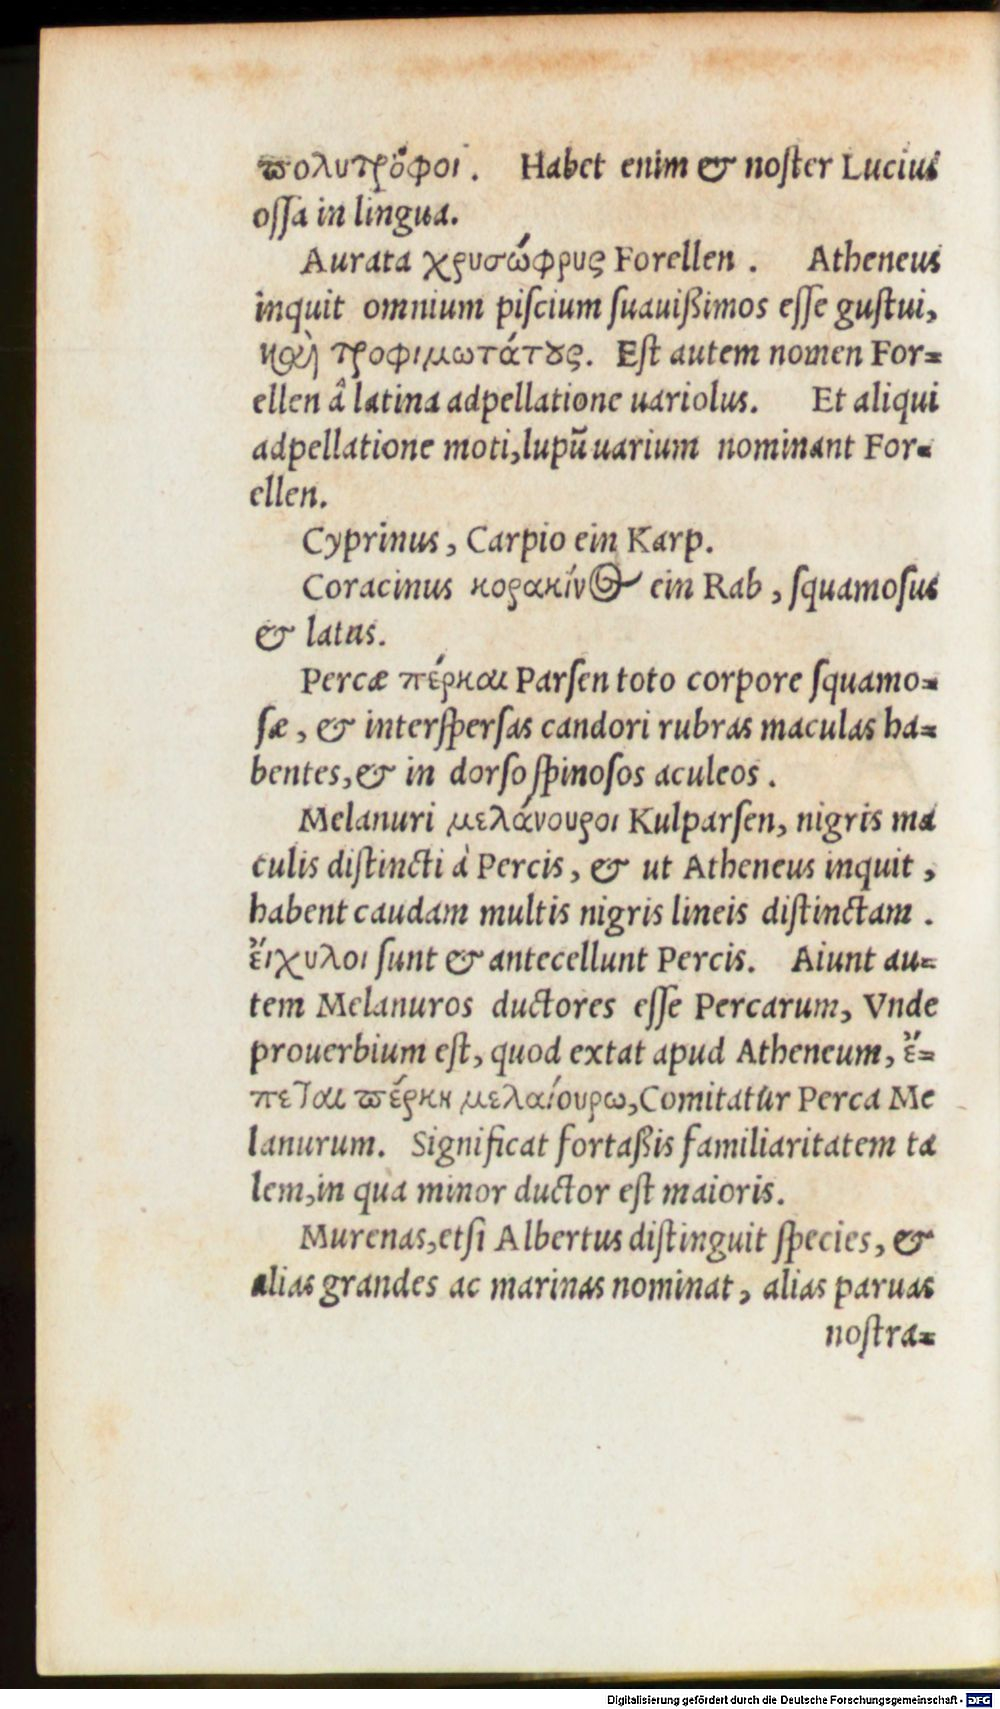 πολυτρόφοι. Habet enim & noster Lucius
ossa in lingua.
Aurata χρυσώφρυς Forellen. Atheneus
inquit omnium piscium suauißimos esse gustui,
καὶ τροφιμωτάτους. Est autem nomen For=
ellen â latina adpellatione uariolus. Et aliqui
adpellatione moti, lupū uarium nominant For=
ellen.
Cyprinus, Carpio ein Karp.
Coracinus κορακίνος ein Rab, squamosus
& latus.
Percæ πέρκαι Parsen toto corpore squamo=
sæ, & interspersas candori rubras maculas ha=
bentes, & in dorso spinosos aculeos.
Melanuri μελάνουροι Kulparsen, nigris ma
culis distincti à Percis, & ut Atheneus inquit,
habent caudam multis nigris lineis distinctam.
ἔιχυλοι sunt & antecellunt Percis. Aiunt au=
tem Melanuros ductores esse Percarum, Vnde
prouerbium est, quod extat apud Atheneum, ἕ=
πεται πέρκη Comitatur Perca Me
lanurum. Significat fortaßis familiaritatem ta
lem, in qua minor ductor est maioris.
Murenas, etsi Albertus distinguit species, &
alias grandes ac marinas nominat, alias paruas
nostra=
Digitalisierung gefördert durch die Deutsche Forschungsgemeinschaft - DFG